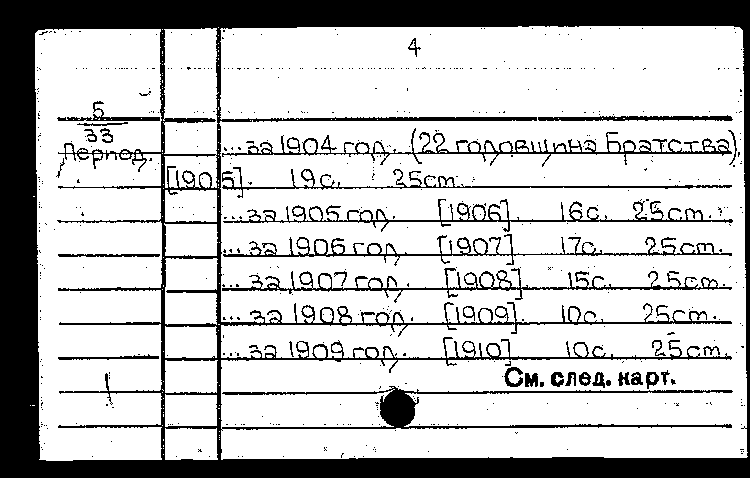 4
5
33
Период.
...за 1904 год. (22 годовщина Братства).
[1905]. 19с. 25cm.
...за 1905 год. [1906]. 16с. 25cm.
...за 1906 год. [1907] 17с. 25cm.
...за 1907 год. [1908]. 15с. 25cm.
...за 1908 год. [1909]. 10с. 25cm.
...за 1909 год. [1910] 10с. 25cm.
См. след. карт.